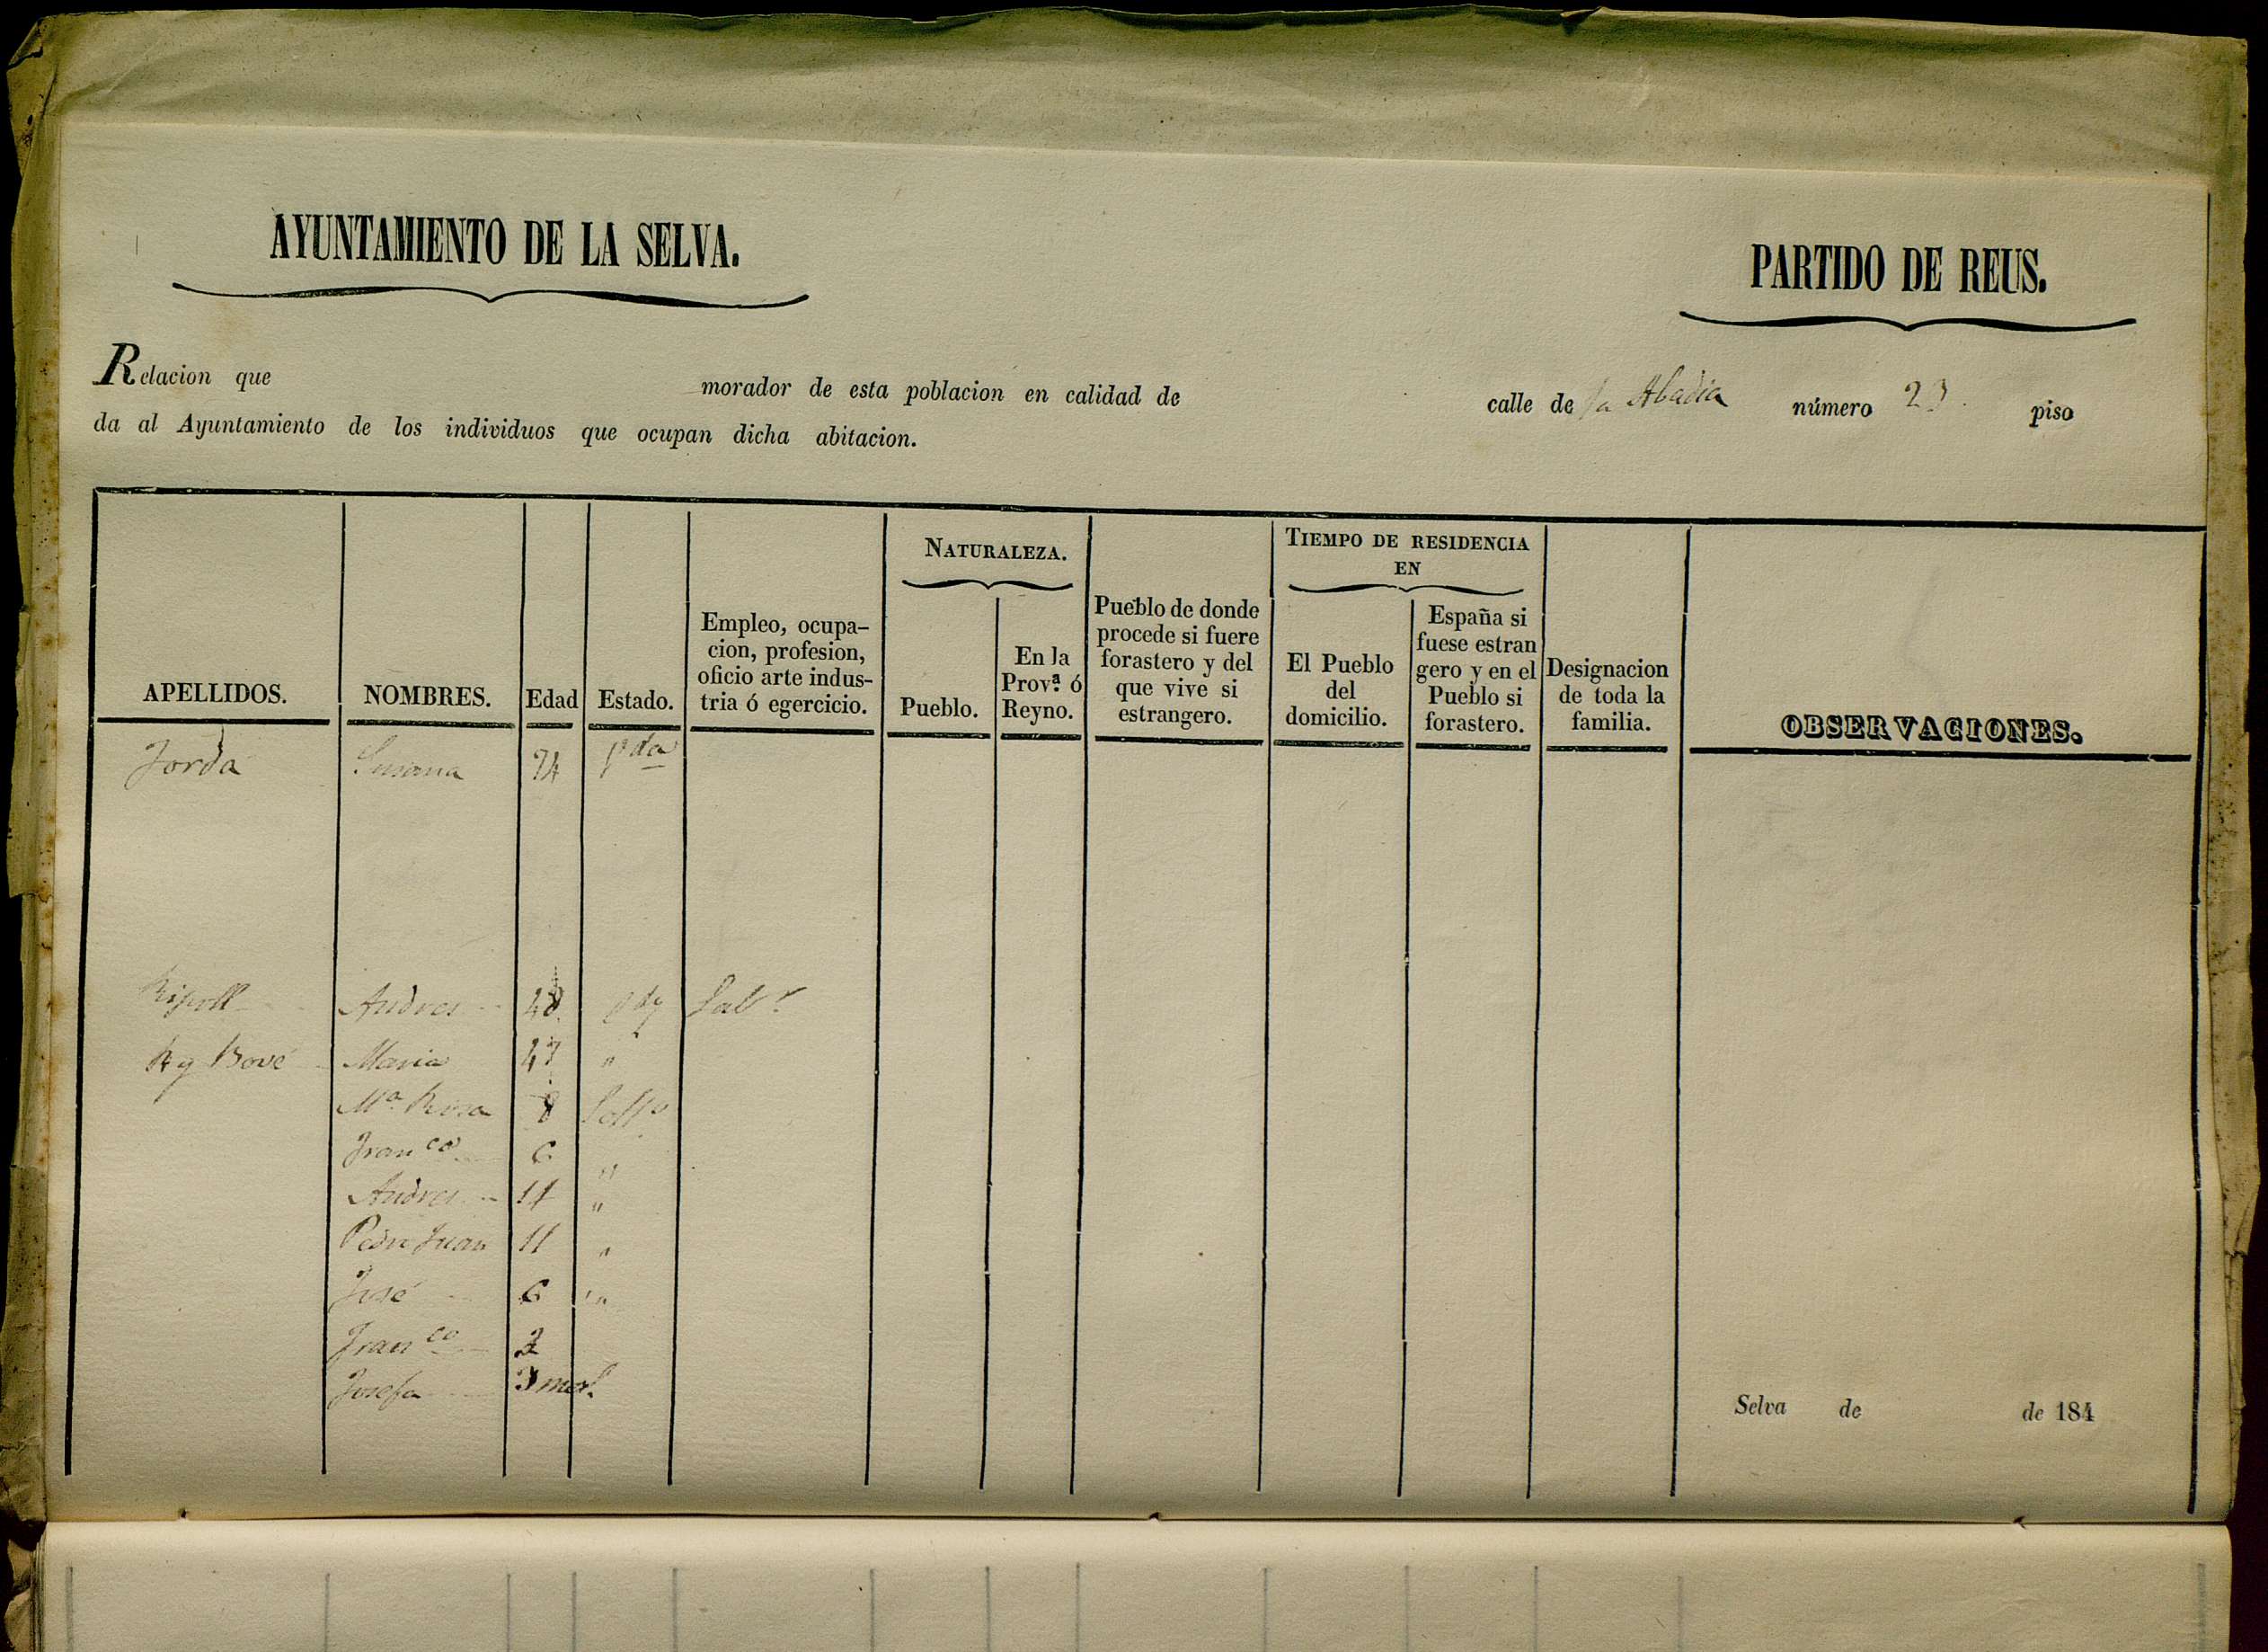 AYUNTAMIENTO DE LA SELVA.
PARTIDO DE REUS.
Relacion que morador de esta poblacion en calidad de calle de la Abadia número 23. piso
da al Ayuntamiento de los individuos que ocupan dicha abitacion.
APELLIDOS.
NOMBRES.
Edad
Estado.
Empleo, ocupa-
cion, profesion,
oficio arte indus-
tria ó egercicio.
NATURALEZA.
Pueblo.
En la
Prov.ª ó
Reyno.
Pueblo de donde
procede si fuere
forastero y del
que vive si
estrangero.
TIEMPO DE RESIDENCIA
EN
El Pueblo
del
domicilio.
España si
fuese estran
gero y en el
Pueblo si
forastero.
Designacion
de toda la
familia.
OBSERVACIONES.
Jordá Susana 74
Ripoll Andres 48 Lab.r
Bové Maria 47 "
Mª Rosa 8 Solt.º
Franco 6 "
Andres 14 "
Pedro Juan 11 "
José 6 "
Franco 2
Josefa 3 mes.
Selva de de 184